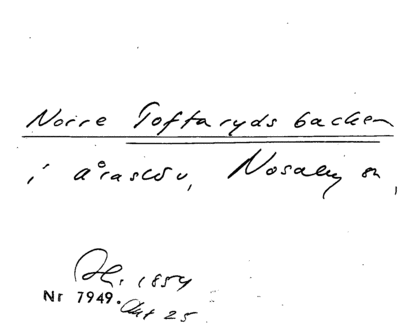 Norre Toftaryds backen
i åraslöv, Nosaby sn,
1854
Nr 7949.
25